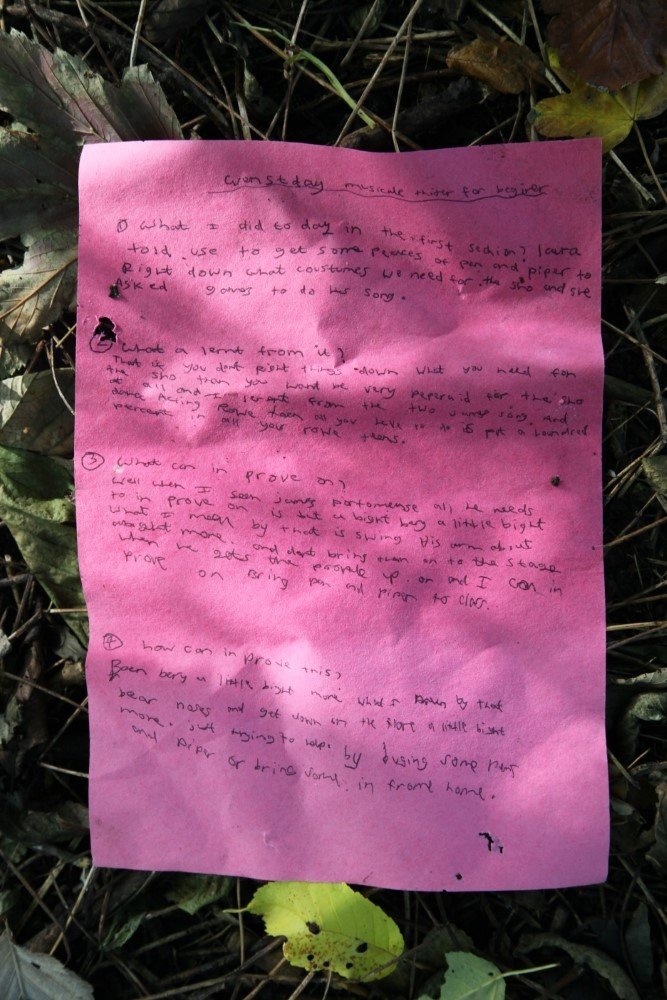 wenstday musicale thiter for beginer
① What I did to day in the first section? laura
told use to get some peaces of pen and piper to
Right down what coustumes we need for the sho and she
Asked James to do his song.
② What a lernt from it?
That if you dont Right things down what you need for
the sho then you wont be very peperaid for the sho
at all and I lernt from the two James song. And
dance Acting Rowe then all you have to do is put a houndred
percent in all your rowe teens.
③ What can in prove on?
Well when I seen James portomense all he needs
to in prove on is but a bight bery a little bight
What I mean by that is swing his arm about
abight more. and dont bring them on to the stage
when he gets the people up on and I can in
prove on Bring pen and piper to class.
④ how can in prove this?
Been bery a little bight more what I mean by that
bear noses and get down on the flore a little bight
more. Just trying to help. by busing some pens
and piper or bring some in frome home.